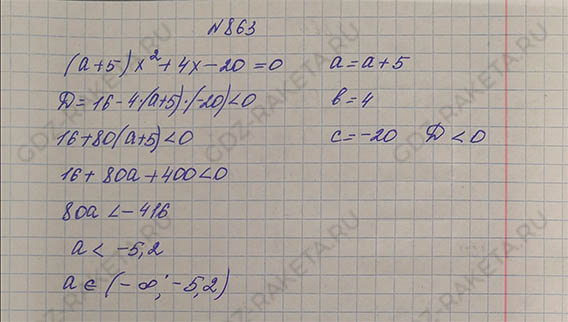 №863
(a+5)x²+4x-20=0 a=a+5
D=16-4·(a+5)·(-20)<0 b=4
16+80(a+5)<0 c=-20 D<0
16+80a+400<0
80a<-416
a<-5,2
a∈(-∞;-5,2)
GDZ-RAKETA.RU
GDZ-RAKETA.RU
GDZ-RAKETA.RU
GDZ-RAKETA.RU